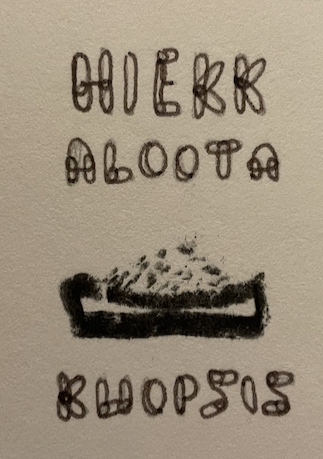 HIEKK
ALOOTA
KUOPSIS